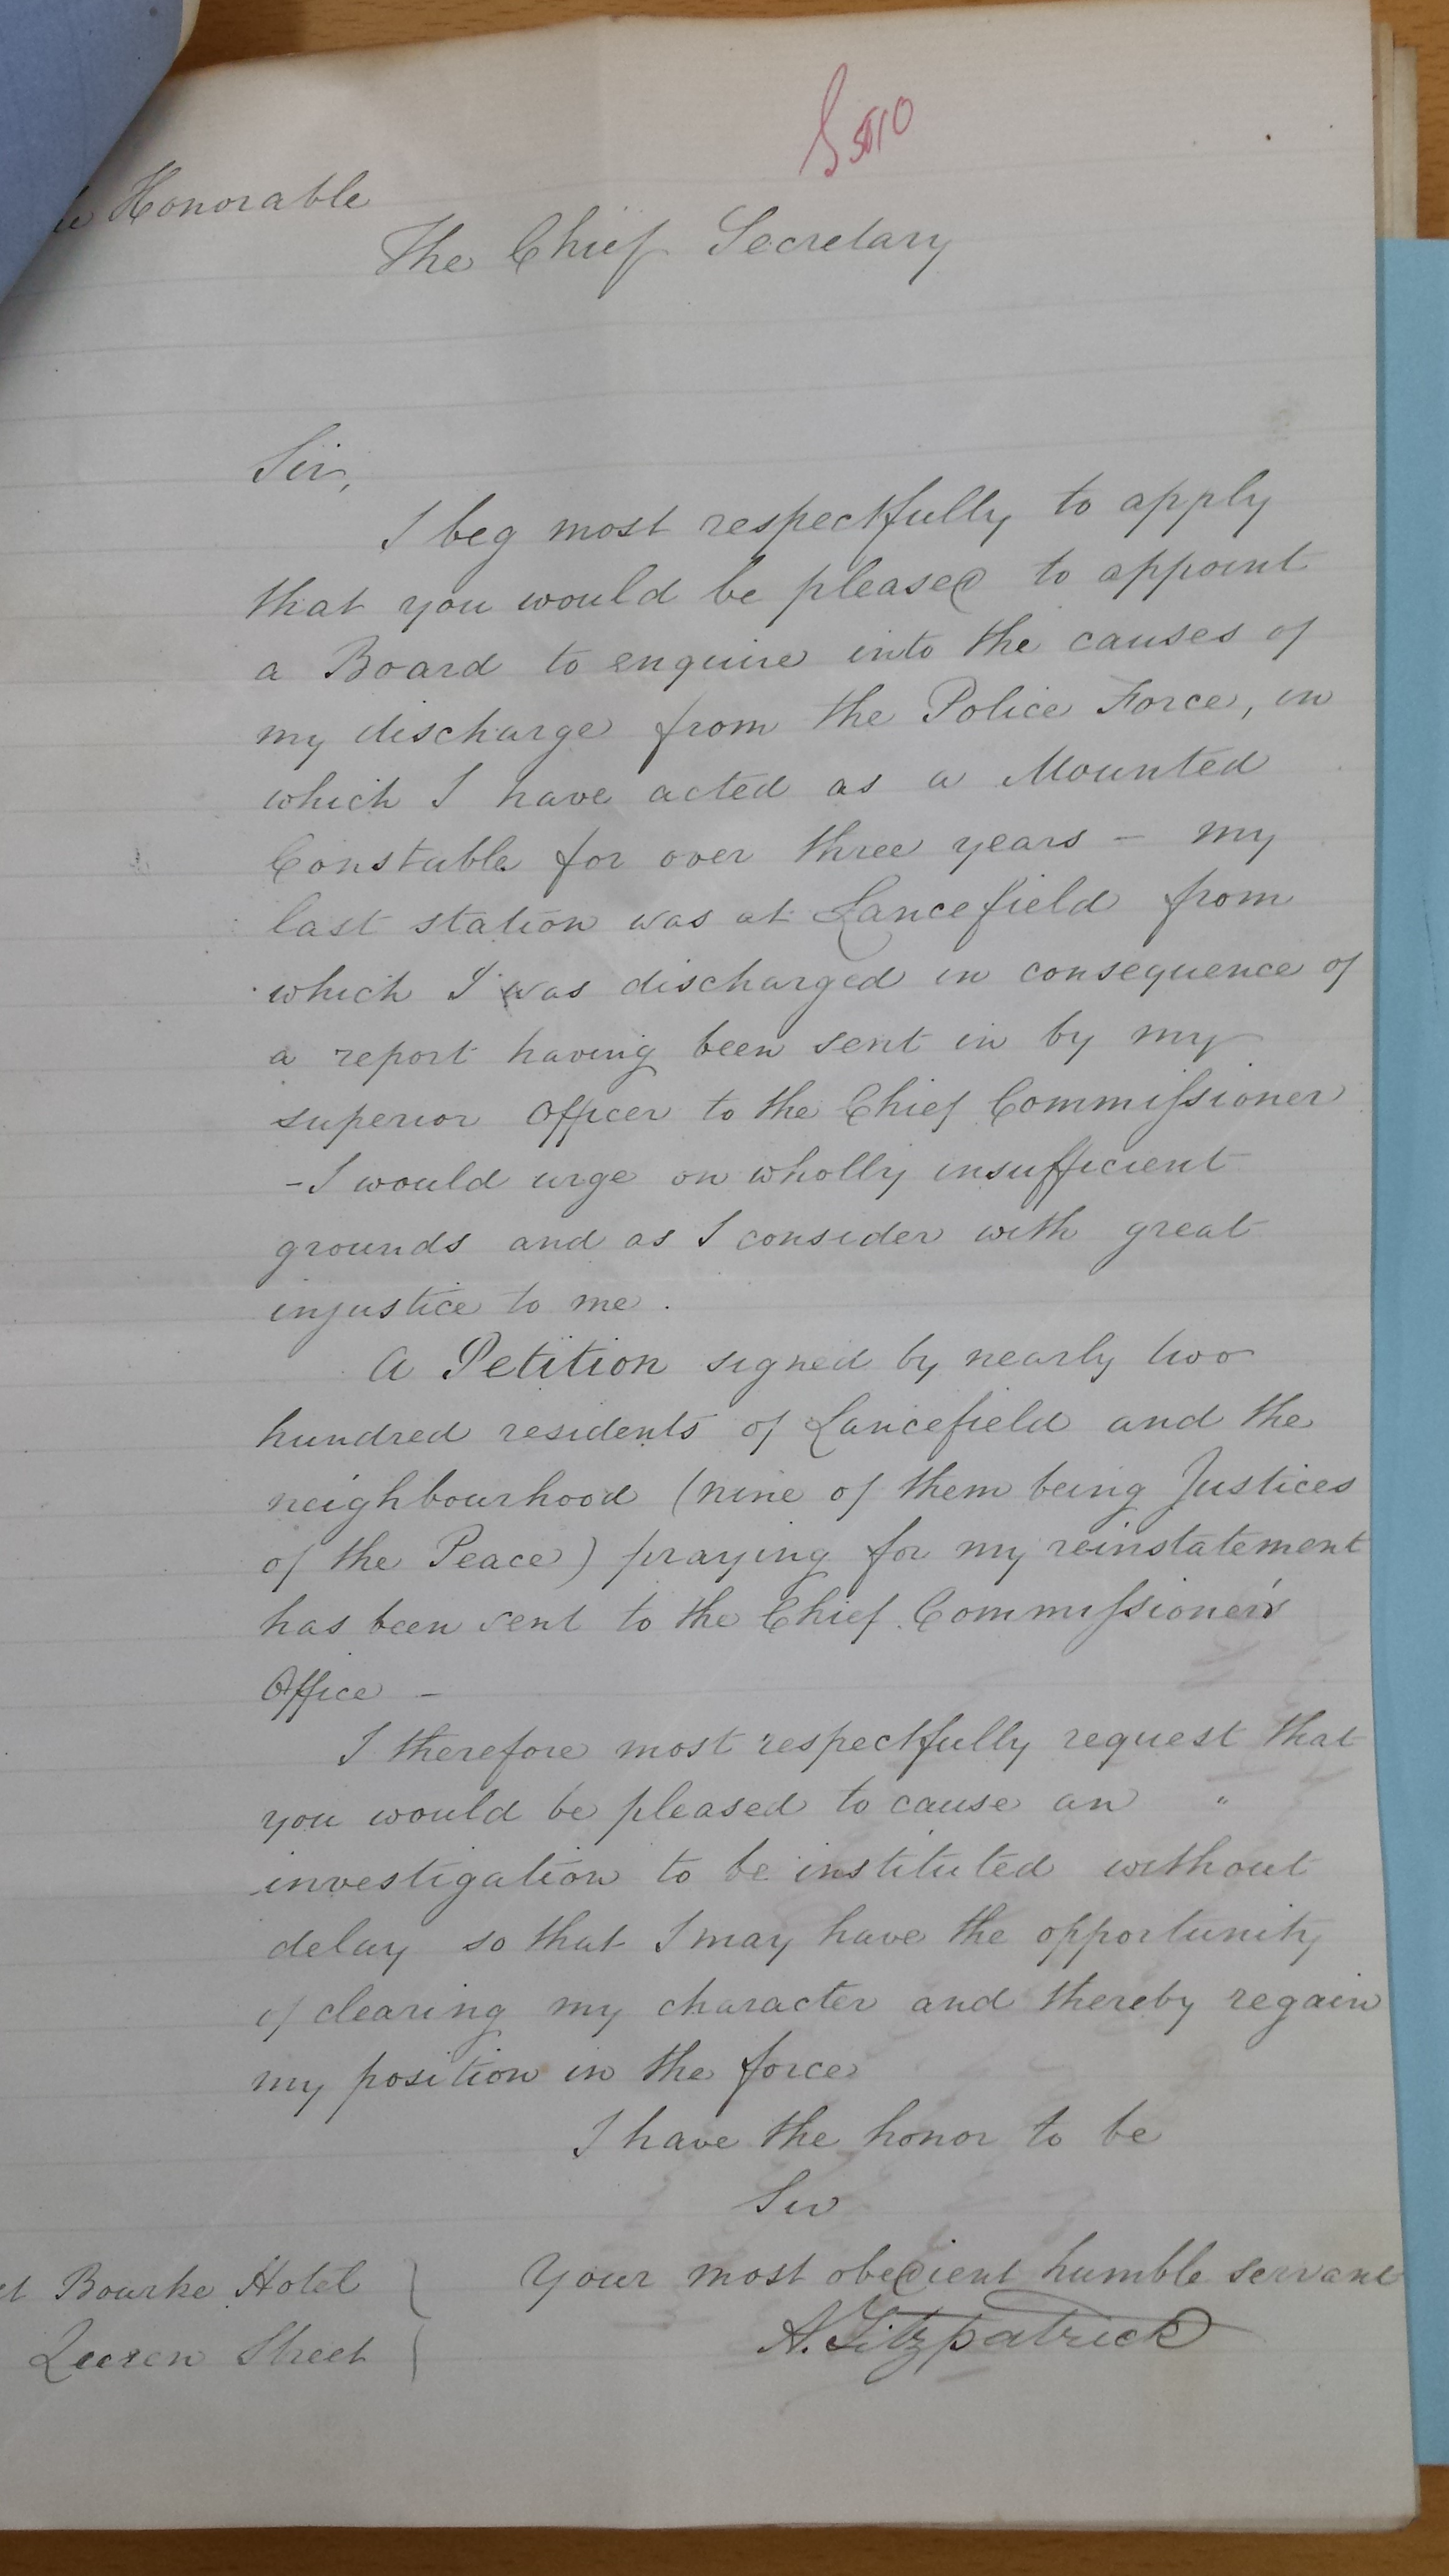 Honorable
The Chief Secretary
Sir,
I beg most respectfully to apply
that you would be pleased to appoint
a Board to enquire into the causes of
my discharge from the Police Force, in
which I have acted as a Mounted
Constable for over three years – my
last station was at Lancefield from
which I was discharged in consequence of
a report having been sent in by my
superior Officer to the Chief Commissioner
– I would urge on wholly insufficient
grounds and as I consider with great
injustice to me.
A Petition signed by nearly two
hundred residents of Lancefield and the
neighbourhood (nine of them being Justices
of the Peace) praying for my reinstatement
has been sent to the Chief Commissioner's
Office –
I therefore most respectfully request that
you would be pleased to cause an "
investigation to be instituted without
delay so that I may have the opportunity
of clearing my character and thereby regain
my position in the force
I have the honor to be
Sir
Your most obedient humble servant
A. Fitzpatrick
Bourke Hotel
Queen Street